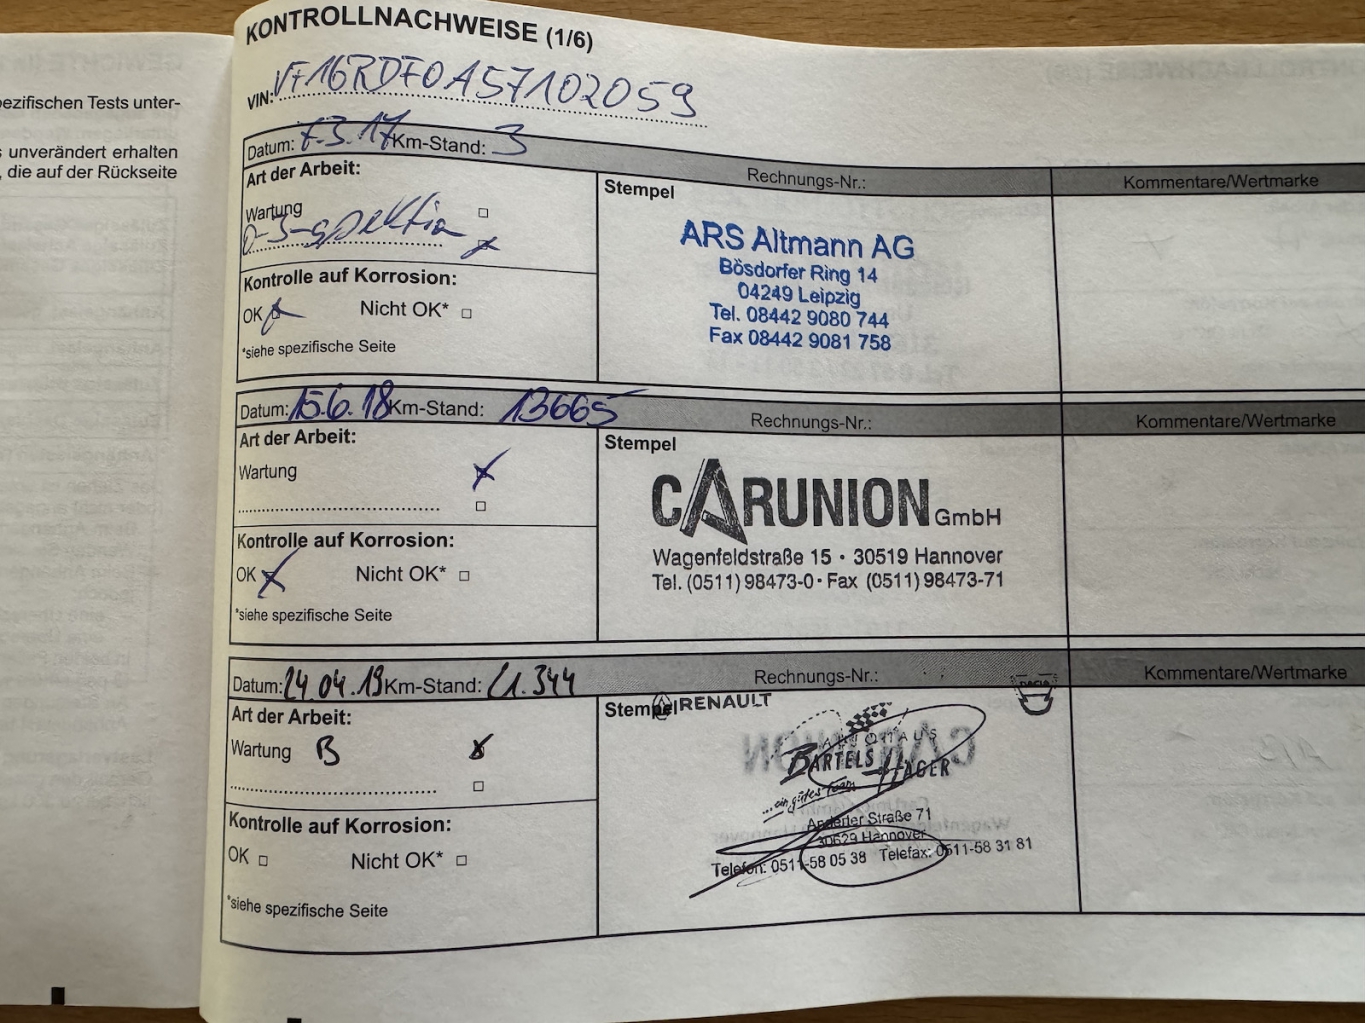 ezifischen Tests unter-
s unverändert erhalten
, die auf der Rückseite
KONTROLLNACHWEISE (1/6)
VIN: VF16RDF0A57102059
Datum: 7.3.17 Km-Stand: 3
Rechnungs-Nr.:
Kommentare/Wertmarke
Art der Arbeit:
Wartung
Kontrolle auf Korrosion:
OK Nicht OK*
*siehe spezifische Seite
Stempel
ARS Altmann AG
Bösdorfer Ring 14
04249 Leipzig
Tel. 08442 9080 744
Fax 08442 9081 758
Datum: 15.6.18 Km-Stand: 13665
Rechnungs-Nr.:
Kommentare/Wertmarke
Art der Arbeit:
Wartung
Kontrolle auf Korrosion:
OK Nicht OK*
*siehe spezifische Seite
Stempel
CARUNION GmbH
Wagenfeldstraße 15 · 30519 Hannover
Tel. (0511) 98473-0 · Fax (0511) 98473-71
Datum: 24.04.19 Km-Stand:
Rechnungs-Nr.:
Kommentare/Wertmarke
Art der Arbeit:
Wartung B
Kontrolle auf Korrosion:
OK Nicht OK*
*siehe spezifische Seite
Stempel
RENAULT
DACIA
AUTOHAUS
BARTELS
...ein gutes Team
Anderter Straße 71
30629 Hannover
Telefon: 0511-58 05 38 Telefax: 0511-58 31 81